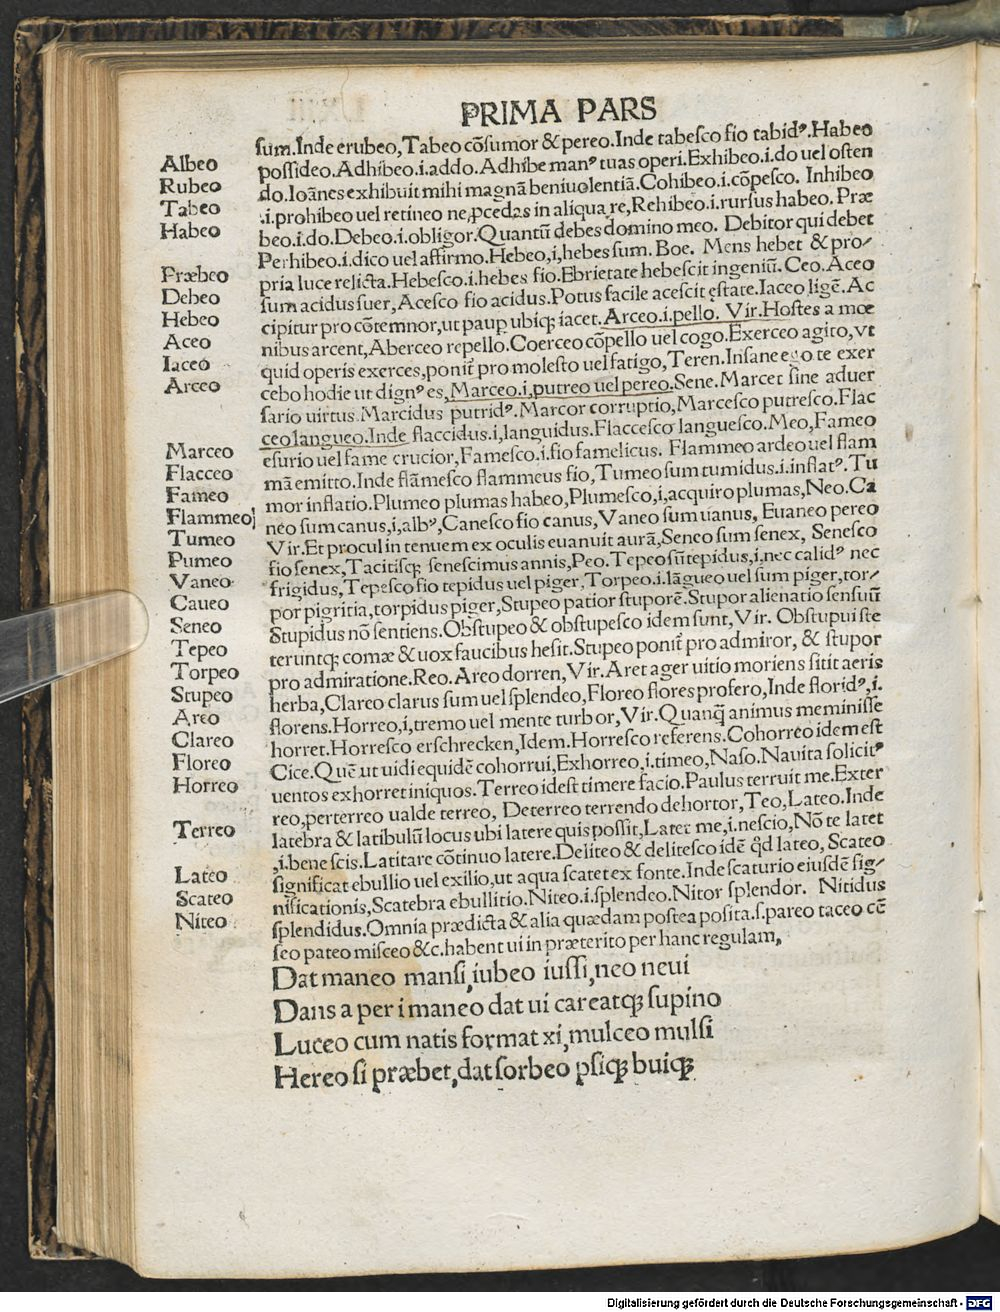 PRIMA PARS
sum. Inde erubeo, Tabeo cōsumor & pereo. Inde tabesco fio tabidꝰ. Habeo
Albeo
possideo. Adhibeo .i. addo. Adhibe manꝰ tuas operi. Exhibeo .i. do uel osten
Rubeo
do. Ioānes exhibuit mihi magnā beniuolentiā. Cohibeo .i. cōpesco. Inhibeo
Tabeo
.i. prohibeo uel retineo ne ꝓcedas in aliqua re, Rehibeo .i. rursus habeo. Præ
Habeo
beo .i. do. Debeo .i. obligor. Quantū debes domino meo. Debitor qui debet
Perhibeo .i. dico uel affirmo. Hebeo, i, hebes sum. Boe. Mens hebet & pro⸗
Præbeo
pria luce relicta. Hebesco .i. hebes fio. Ebrietate hebescit ingeniū. Ceo. Aceo
Debeo
sum acidus suer, Acesco fio acidus. Potus facile acescit ęstate. Iaceo ligē. Ac
Hebeo
cipitur pro cōtemnor, ut paup ubiqꝫ iacet. Arceo .i. pello. Vir. Hostes a mœ
Aceo
nibus arcent, Aberceo repello. Coerceo cōpello uel cogo. Exerceo agito, vt
Iaceo
quid operis exerces, ponit̄ pro molesto uel fatigo, Teren. Insane ego te exer
Arceo
cebo hodie ut dignꝰ es, Marceo .i, putreo uel pereo. Sene. Marcet sine aduer
sario uirtus. Marcidus putridꝰ. Marcor corruptio, Marcesco putresco. Flac
ceo langueo. Inde flaccidus .i, languidus. Flaccesco languesco. Meo, Fameo
Marceo
esurio uel fame crucior, Famesco .i. fio famelicus. Flammeo ardeo uel flam
Flacceo
mā emitto. Inde flāmesco flammeus fio, Tumeo sum tumidus .i. inflatꝰ. Tu
Fameo
mor inflatio. Plumeo plumas habeo, Plumesco, i, acquiro plumas, Neo. Ca
Flammeo
neo sum canus, i, albꝰ, Canesco fio canus, Vaneo sum uanus, Euaneo pereo
Tumeo
Vir. Et procul in tenuem ex oculis euanuit aurā, Seneo sum senex, Senesco
Pumeo
fio senex, Tacitisqꝫ senescimus annis, Peo. Tepeo sū tepidus, i, nec calidꝰ nec
Vaneo
frigidus, Tepesco fio tepidus uel piger, Torpeo .i. lāgueo uel sum piger, tor⸗
Caueo
por pigritia, torpidus piger, Stupeo patior stuporē. Stupor alienatio sensuū
Seneo
Stupidus nō sentiens. Obstupeo & obstupesco idem sunt, Vir. Obstupui ste
Tepeo
teruntqꝫ comæ & uox faucibus hesit. Stupeo ponit̄ pro admiror, & stupor
Torpeo
pro admiratione. Reo. Areo dorren, Vir. Aret ager uitio moriens sitit aeris
Stupeo
herba, Clareo clarus sum uel splendeo, Floreo flores profero, Inde floridꝰ, i.
Areo
florens. Horreo, i, tremo uel mente turbor, Vir. Quanq̄ animus meminisse
Clareo
horret. Horresco erschrecken, Idem. Horresco referens. Cohorreo idem est
Floreo
Cice. Quē ut uidi equidē cohorrui, Exhorreo, i. timeo, Naso. Nauita solicitꝰ
Horreo
uentos exhorret iniquos. Terreo idest timere facio. Paulus terruit me. Exter
reo, perterreo ualde terreo, Deterreo terrendo dehortor, Teo, Lateo. Inde
Terreo
latebra & latibulū locus ubi latere quis possit, Latet me, i. nescio, Nō te latet
, i. bene scis. Latitare cōtinuo latere. Deliteo & delitesco idē qd̄ lateo, Scateo
Lateo
significat ebullio uel exilio, ut aqua scatet ex fonte. Inde scaturio eiusdē sig⸗
Scateo
nificationis, Scatebra ebullitio. Niteo .i. splendeo. Nitor splendor. Nitidus
Niteo
splendidus. Omnia prædicta & alia quædam postea posita .s. pareo taceo cē
seo pateo misceo &c. habent ui in præterito per hanc regulam,
Dat maneo mansi, iubeo iussi, neo neui
Dans a per i maneo dat ui careatqꝫ supino
Luceo cum natis format xi, mulceo mulsi
Hereo si præbet, dat sorbeo psiqꝫ buiqꝫ
Digitalisierung gefördert durch die Deutsche Forschungsgemeinschaft - DFG